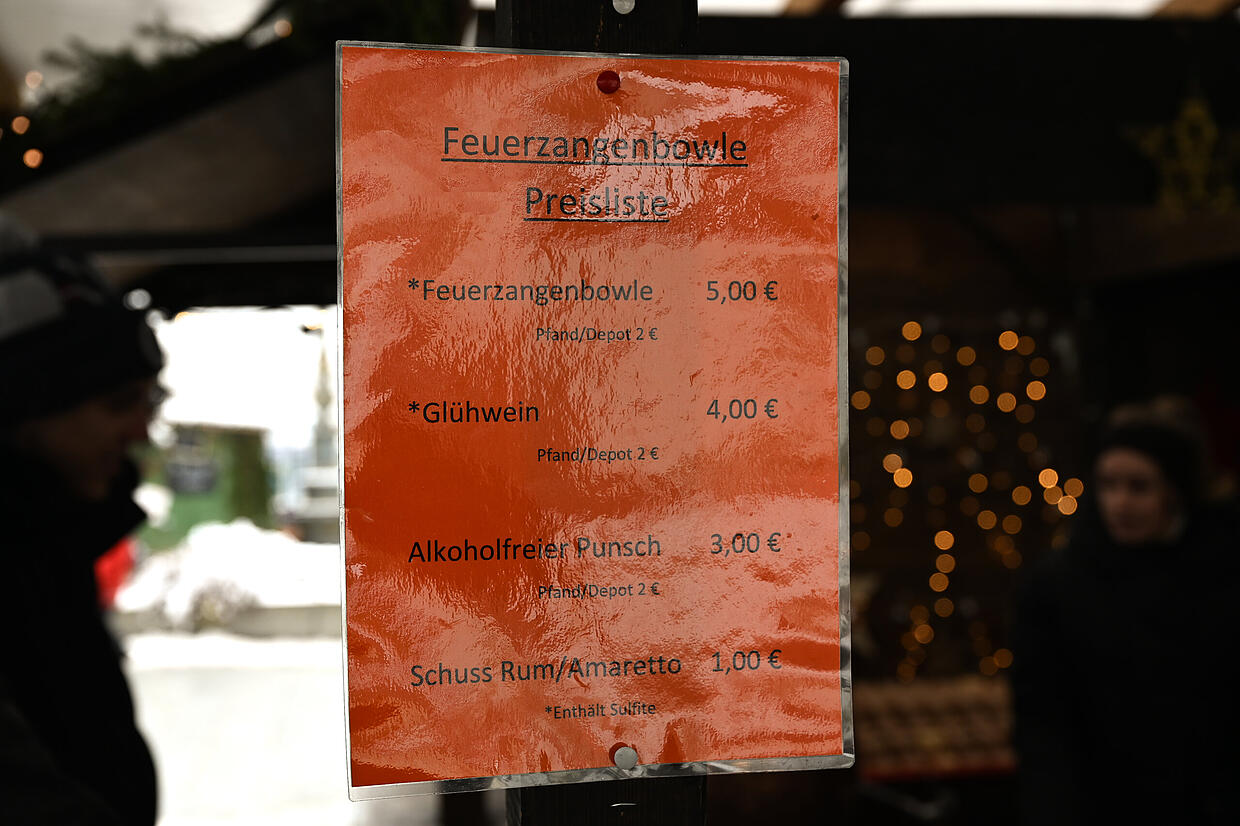 Feuerzangenbowle
Preisliste
*Feuerzangenbowle 5,00 €
Pfand/Depot 2 €
*Glühwein 4,00 €
Pfand/Depot 2 €
Alkoholfreier Punsch 3,00 €
Pfand/Depot 2 €
Schuss Rum/Amaretto 1,00 €
*Enthält Sulfite